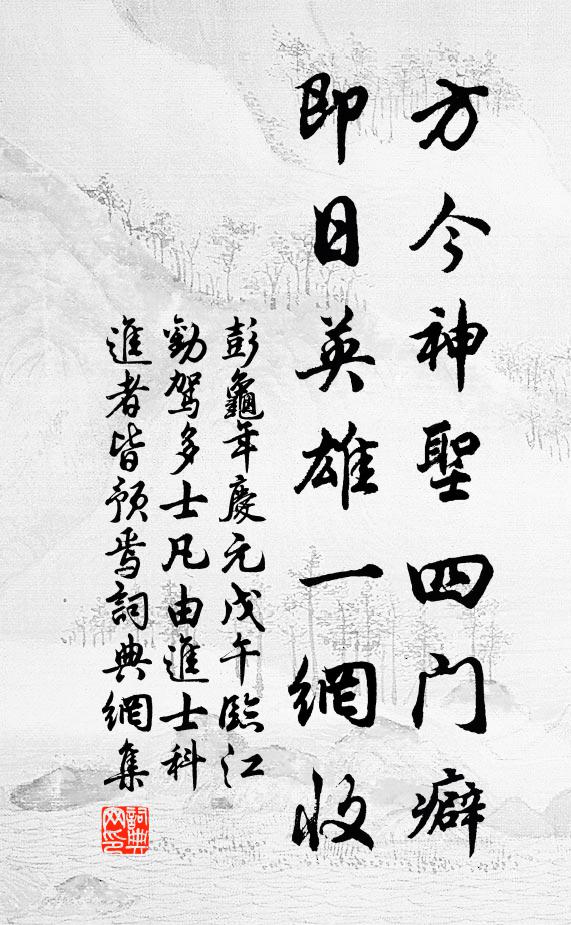 方今神聖四门癖
即日英雄一網收
彭龜年慶元戊午臨江
勸駕多士凡由進士科
進者皆預焉詞典網集
詞典网印